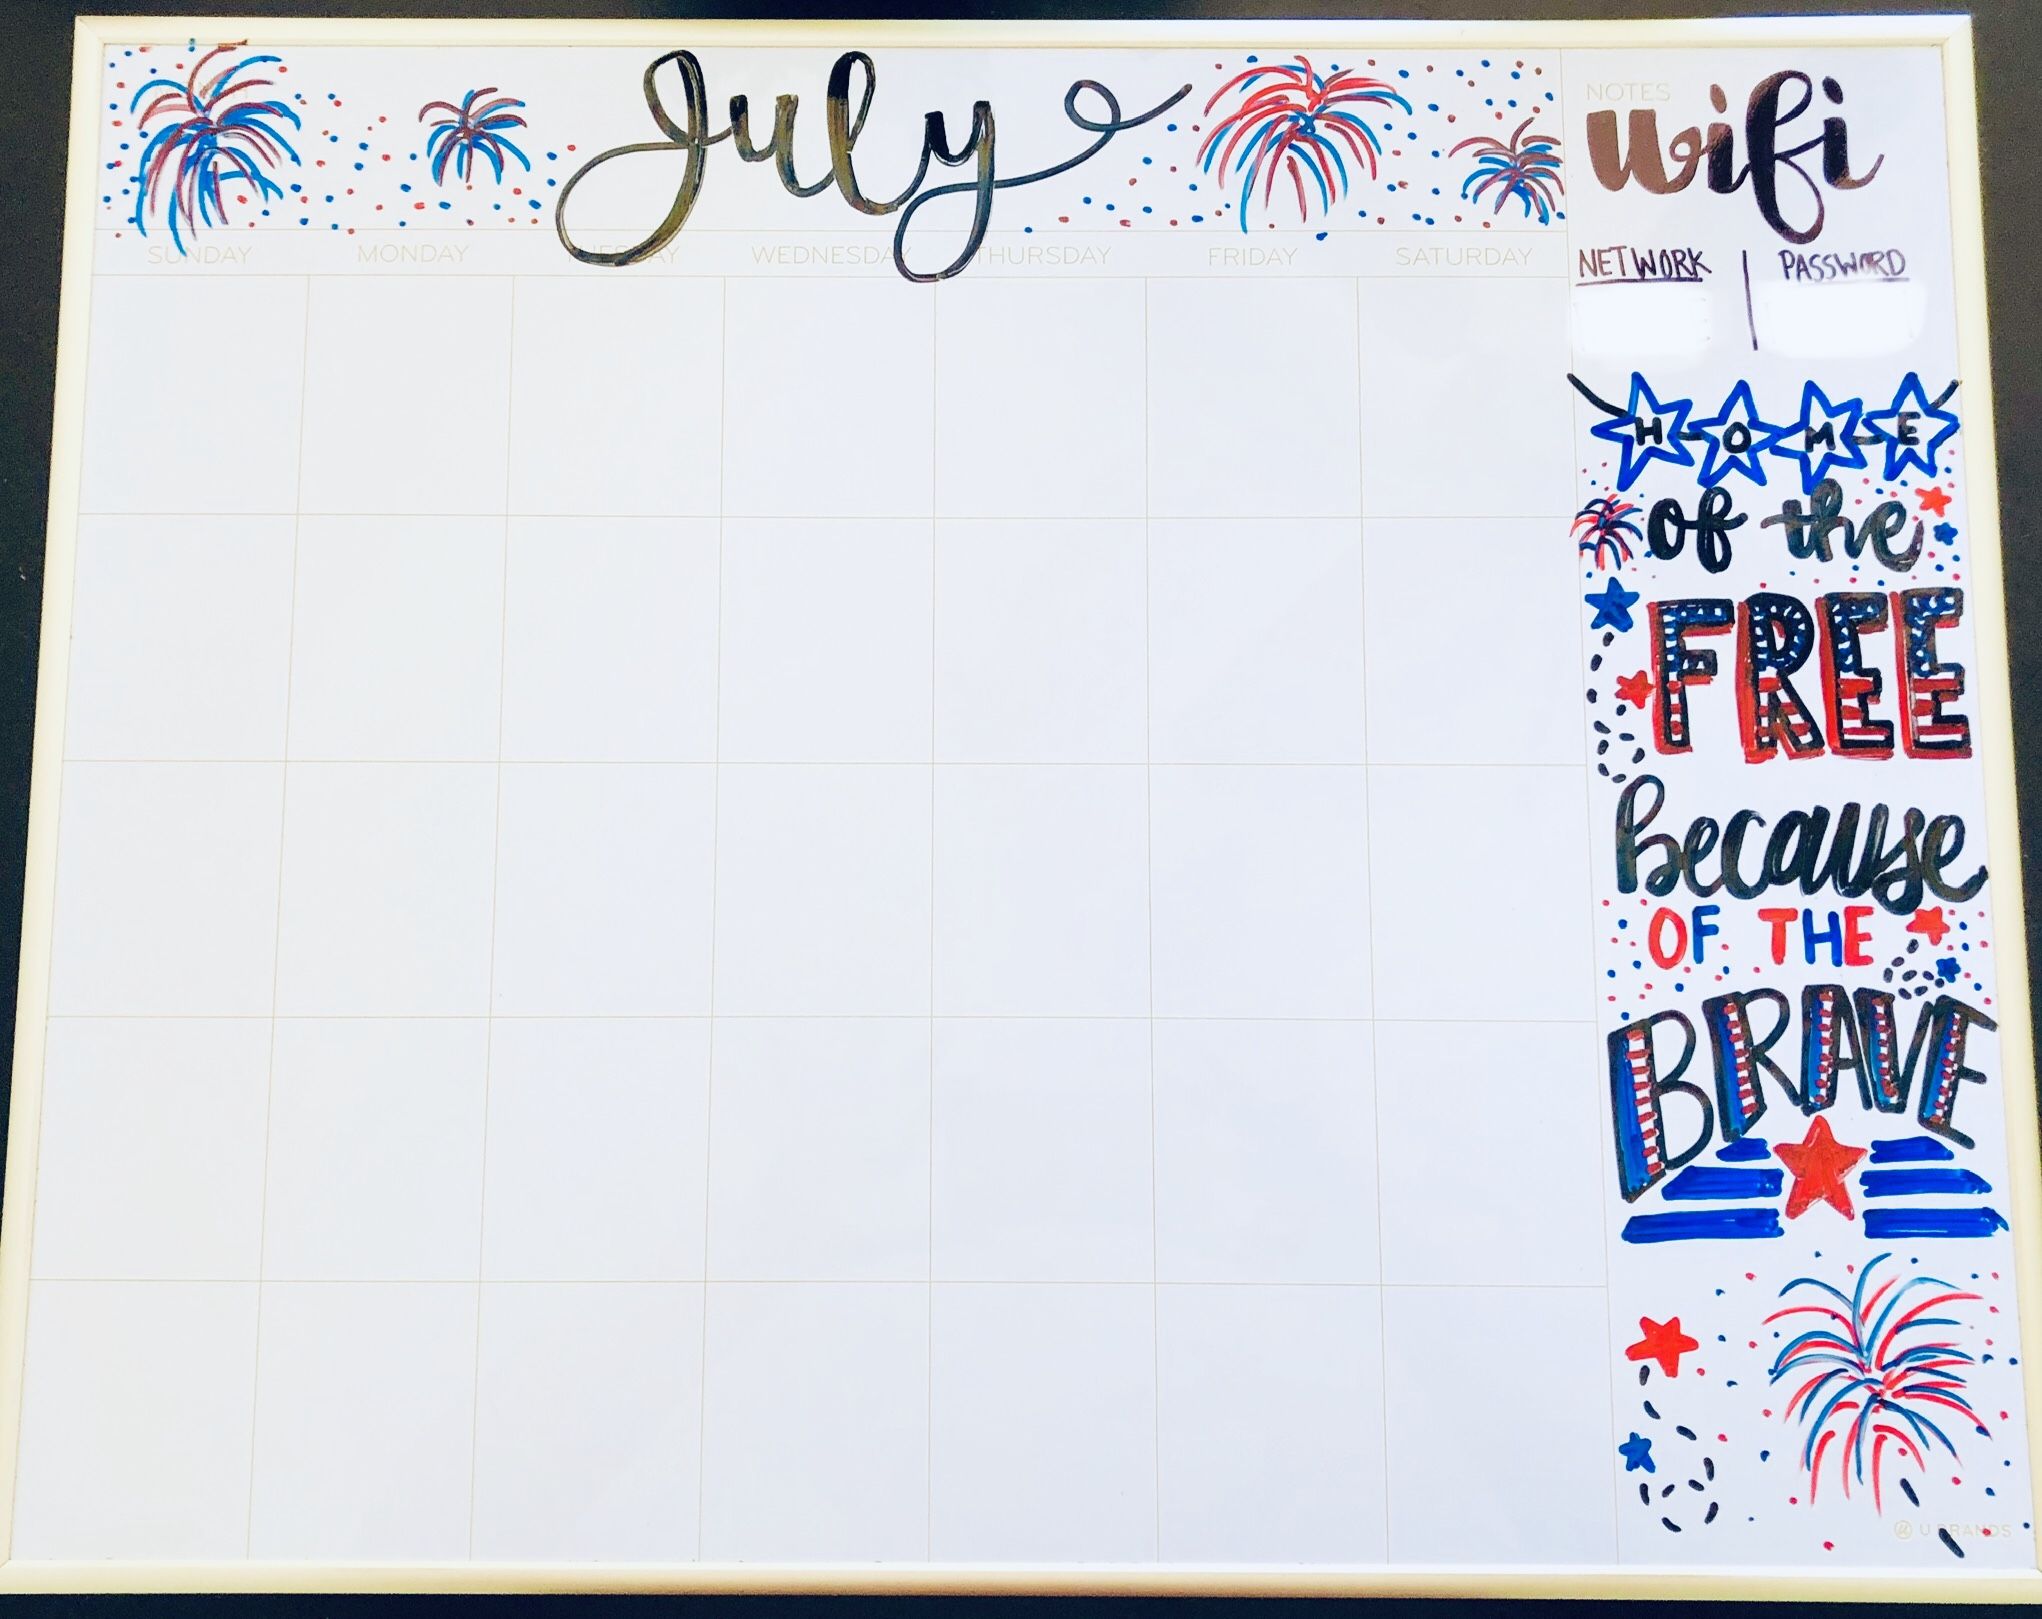 July
SUNDAY MONDAY TUESDAY WEDNESDAY THURSDAY FRIDAY SATURDAY
NOTES
wifi
NETWORK | PASSWORD
HOME
of the
FREE
because
OF THE
BRAVE
U BRANDS